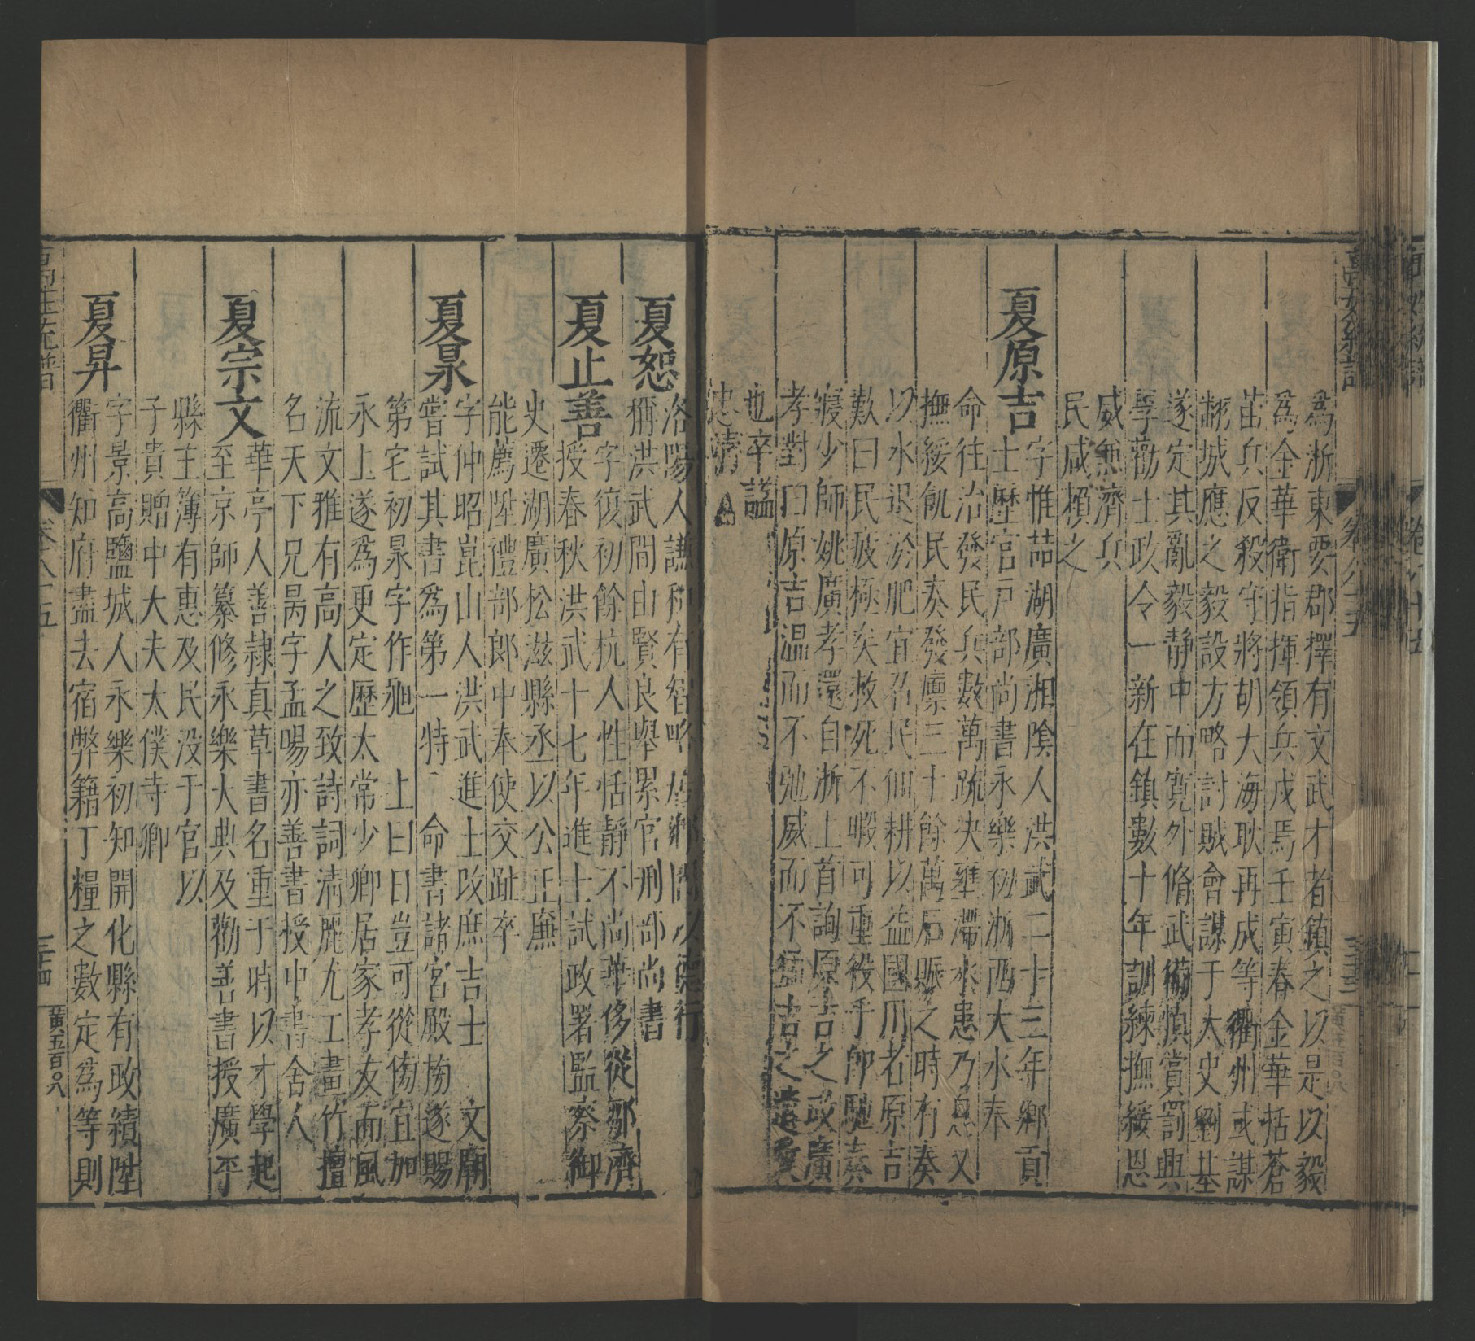 為浙東要郡擇有文武才者鎮之以是以毅
為金華衛指揮領兵戍焉壬寅春金華括蒼
苗兵反殺守將胡大海耿再成等衢州或謀
翻城應之毅設方略討賊會謀于太史劉基
遂定其亂毅靜中而寬外脩武備慎賞罰興
學勸士政令一新在鎮數十年訓練撫綏恩
威兼濟兵
民咸賴之
夏原吉
字惟喆湖廣湘陰人洪武二十三年鄉貢
士歷官戶部尚書永樂初浙西大水奉
命往治發民兵數萬疏決壅滯水患乃息又
撫綏飢民奏發廩三十餘萬石賑之時有奏
以水退淤肥宜召民佃耕以益國用者原吉
歎曰民疲極矣救死不暇可重役乎即馳奏
寢少師姚廣孝還自浙上首詢原吉之政廣
孝對曰原吉溫而不弛威而不猛古之遺愛
也卒諡
忠靖
夏恕
洛陽人謙和有智略
稱洪武間由賢良舉累官刑部尚書
夏止善
字復初餘杭人性恬靜不尚華侈從鄒濟
授春秋洪武十七年進士試政署監察御
史遷湖廣松滋縣丞以公正廉
能薦陞禮部郎中奉使交趾卒
夏昶
字仲昭崑山人洪武進士改庶吉士 文廟
嘗試其書為第一特 命書諸宮殿榜遂賜
第宅初泉字作昶 上曰日豈可從傍宜加
永上遂為更定歷太常少卿居家孝友而風
流文雅有高人之致詩詞清麗尤工畫竹擅
名天下兄昺字孟暘亦善書授中書舍人
夏宗文
華亭人善隷真草書名重于時以才學起
至京師纂修永樂大典及勸善書授廣平
縣主簿有惠及民没于官以
子貴贈中大夫太僕寺卿
夏昇
字景高鹽城人永樂初知開化縣有政績陞
衢州知府盡去宿弊籍丁糧之數定為等則
萬姓統譜
卷八十五
三十四
黃五百〇八